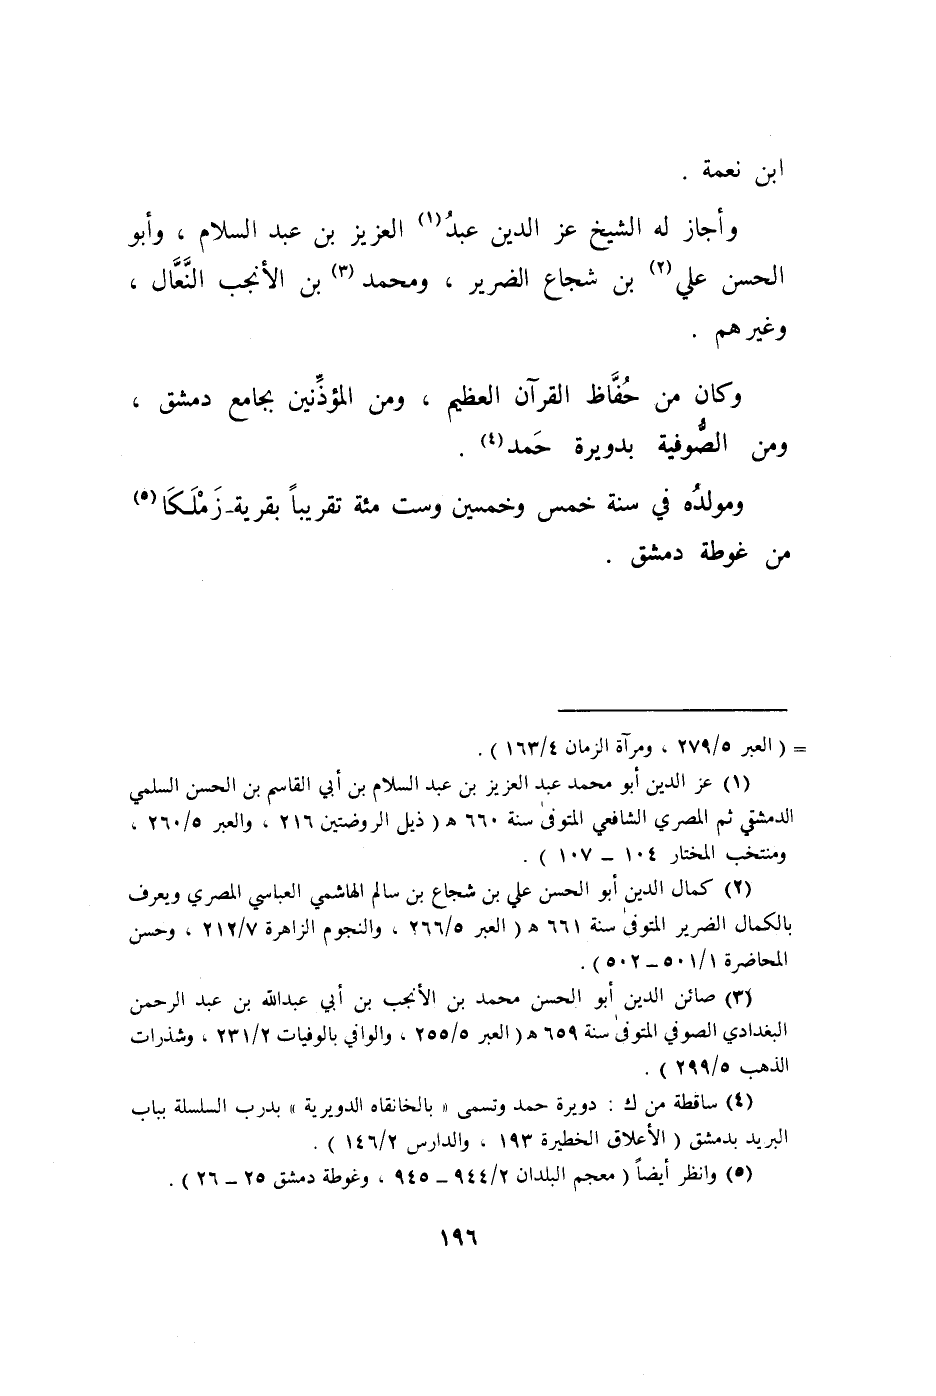 ابن نعمة .
وأجاز له الشيخ عز الدين عبدُ(١) العزيز بن عبد السلام ، وأبو
الحسن علي(٢) بن شجاع الضرير ، ومحمد(٣) بن الأنجب النَّعَّال ،
وغيرهم .
وكان من حُفَّاظ القرآن العظيم ، ومن المؤذِّنين بجامع دمشق ،
ومن الصُّوفية بدويرة حَمد(٤) .
ومولدُه في سنة خمس وخمسين وست مئة تقريباً بقرية زَمْلَكَا(٥)
من غوطة دمشق .
= ( العبر ٢٧٩/٥ ، ومرآة الزمان ١٦٣/٤ ) .
(١) عز الدين أبو محمد عبد العزيز بن عبد السلام بن أبي القاسم بن الحسن السلمي
الدمشقي ثم المصري الشافعي المتوفى سنة ٦٦٠ ه ( ذيل الروضتين ٢١٦ ، والعبر ٢٦٠/٥ ،
ومنتخب المختار ١٠٤ ــ ١٠٧ ) .
(٢) كمال الدين أبو الحسن علي بن شجاع بن سالم الهاشمي العباسي المصري ويعرف
بالكمال الضرير المتوفى سنة ٦٦١ ه ( العبر ٢٦٦/٥ ، والنجوم الزاهرة ٢١٢/٧ ، وحسن
المحاضرة ٥٠١/١ ــ ٥٠٢ ) .
(٣) صائن الدين أبو الحسن محمد بن الأنجب بن أبي عبدالله بن عبد الرحمن
البغدادي الصوفي المتوفى سنة ٦٥٩ ه ( العبر ٢٥٥/٥ ، والوافي بالوفيات ٢٣١/٢ ، وشذرات
الذهب ٢٩٩/٥ ) .
(٤) ساقطة من ك : دويرة حمد وتسمى « بالخانقاه الدويرية » بدرب السلسلة بباب
البريد بدمشق ( الأعلاق الخطيرة ١٩٣ ، والدارس ١٤٦/٢ ) .
(٥) وانظر أيضاً ( معجم البلدان ٩٤٤/٢ ــ ٩٤٥ ، وغوطة دمشق ٢٥ ــ ٢٦ ) .
١٩٦